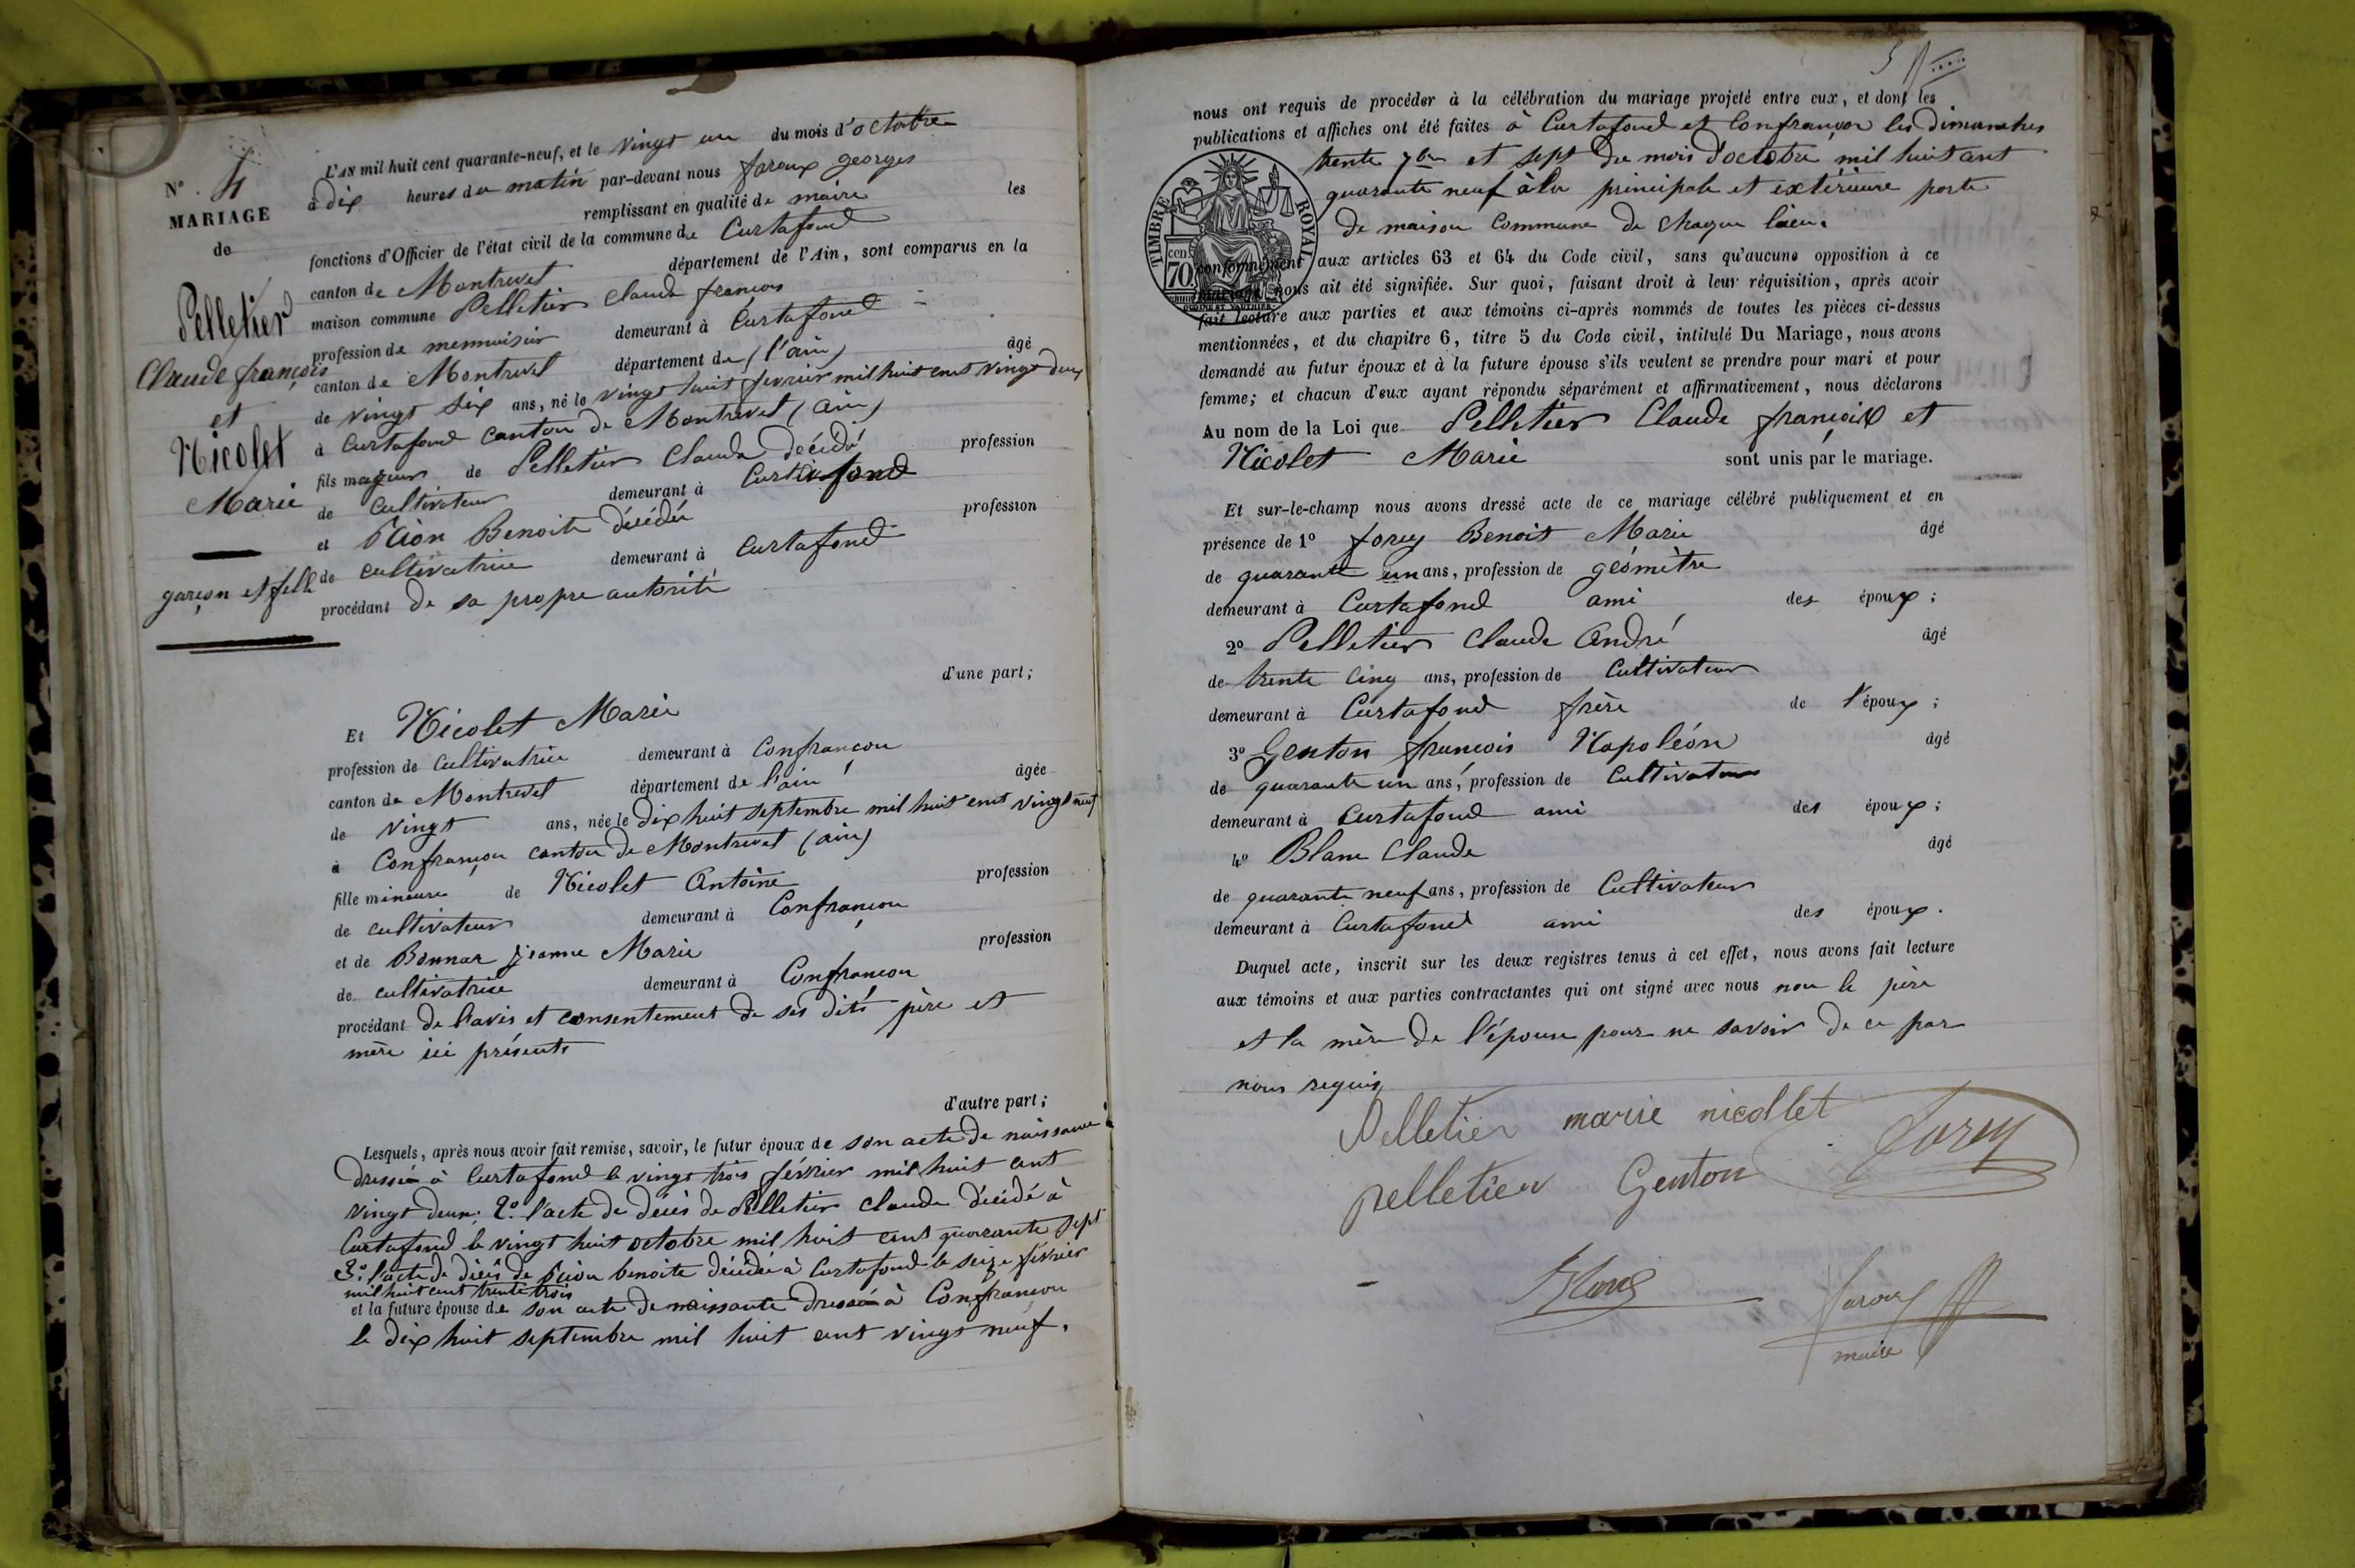 N° 4
MARIAGE
de
Pelletier
Claude françois
et
Nicolet
Marie
garçon et fille
L'AN mil huit cent quarante-neuf, et le vingt un du mois d'octobre
à dix heures du matin par-devant nous georges
remplissant en qualité de maire les
fonctions d'Officier de l'état civil de la commune de Curtafond
canton de Montrevel département de l'Ain, sont comparus en la
maison commune Pelletier Claude françois
profession de menuisier demeurant à Curtafond
canton de Montrevel département de (l'ain) âgé
de vingt six ans, né le vingt huit fevrier mil huit cent vingt deux
à Curtafond canton de Montrevel (ain)
fils majeur de Pelletier Claude décédé profession
de cultivateur demeurant à Curtafond
et Benoite décédée profession
de cultivatrice demeurant à Curtafond
procédant de sa propre autorité
d'une part;
Et Nicolet Marie
profession de cultivatrice demeurant à Confrançon
canton de Montrevel département de l'ain âgée
de vingt ans, née le dix huit septembre mil huit cent vingt neuf
à Confrançon canton de Montrevel (ain)
fille mineure de Nicolet Antoine profession
de cultivateur demeurant à Confrançon
et de Bonnar jeanne Marie profession
de cultivatrice demeurant à Confrançon
procédant de l'avis et consentement de ses dits père et
mère ici présents
d'autre part;
Lesquels, après nous avoir fait remise, savoir, le futur époux de son acte de naissance
dressé à Curtafond le vingt trois février mil huit cent
vingt deux; 2° l'acte de décès de Pelletier Claude décédé à
Curtafond le vingt huit octobre mil huit cent quarante sept
3° l'acte de décès de benoite décédée à Curtafond le seize février
mil huit cent trente trois
et la future épouse de son acte de naissante dressé à Confrançon
le dix huit septembre mil huit cent vingt neuf.
5
nous ont requis de procéder à la célébration du mariage projeté entre eux, et dont les
publications et affiches ont été faites à Curtafond et Confrançon les dimanches
trente 7bre et sept du mois d'octobre mil huit cent
quarante neuf à la principale et extérieure porte
de maison commune de chaque lieu.
TIMBRE ROYAL
70 cens
conformément aux articles 63 et 64 du Code civil, sans qu'aucune opposition à ce
mariage nous ait été signifiée. Sur quoi, faisant droit à leur réquisition, après avoir
fait lecture aux parties et aux témoins ci-après nommés de toutes les pièces ci-dessus
mentionnées, et du chapitre 6, titre 5 du Code civil, intitulé Du Mariage, nous avons
demandé au futur époux et à la future épouse s'ils veulent se prendre pour mari et pour
femme; et chacun d'eux ayant répondu séparément et affirmativement, nous déclarons
Au nom de la Loi que Pelletier Claude françois et
Nicolet Marie sont unis par le mariage.
Et sur-le-champ nous avons dressé acte de ce mariage célébré publiquement et en
présence de 1° forey Benoit Marie âgé
de quarante un ans, profession de géomètre
demeurant à Curtafond ami des époux;
2° Pelletier Claude André âgé
de trente cinq ans, profession de Cultivateur
demeurant à Curtafond frère de l'époux;
3° Genton françois Napoléon âgé
de quarante un ans, profession de Cultivateur
demeurant à Curtafond ami des époux;
4° Blanc Claude âgé
de quarante neuf ans, profession de Cultivateur
demeurant à Curtafond ami des époux.
Duquel acte, inscrit sur les deux registres tenus à cet effet, nous avons fait lecture
aux témoins et aux parties contractantes qui ont signé avec nous non le père
et la mère de l'épouse pour ne savoir de ce par
nous requis
Pelletier marie nicollet Forey
pelletier Genton
Blanc
maire